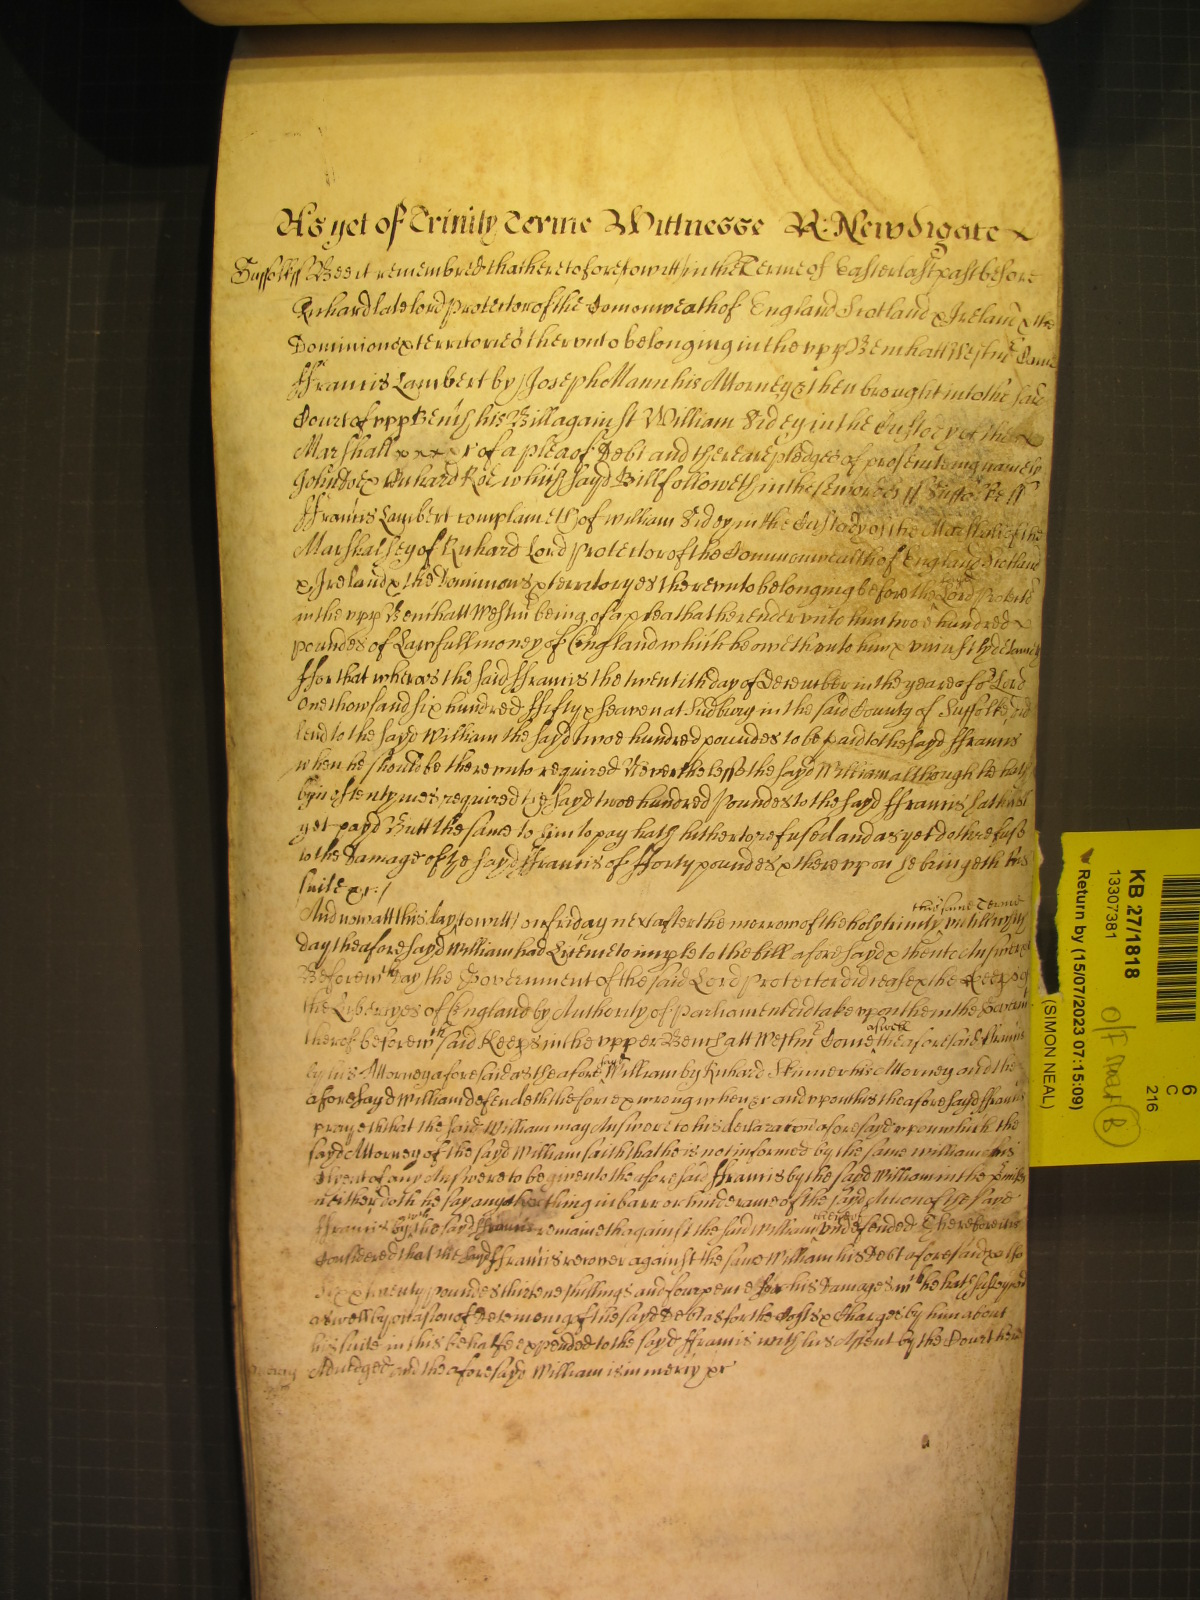 As yet of Trinity Terme Wittnesse R: Newdigate x
Suffolk ss Bee it remembred that heretofore (to witt) in the Terme of Easter last past before
Richard late lord Protector of the Comonweath of England Scotland & Ireland & the
Dominions & territories therunto belonging in the upp Bench att Westmr Came
ffrancis Lambert by Joseph Mann his Attorney & then brought into the said
Court of upp Bench his Bill against William Sidey in the Custody of the x
Marshall x x x r of a plea of Debt and there are pledges of prosecuting namely
John Doe & Richard Roe which sayd Bill followeth in these words ss Suffolke ss
ffrancis Lambert complaineth of William Sidey in the Custody of the Marshall of the
Marshalsey of Richard Lord Protector of the Commonwealth of England Scotland
& Ireland & the Dominions & territoryes therevnto belonging before the Lord Protector
in the upp Bench att Westmr being of a plea that he render unto him twoe hundred x
poundes of Lawfull money of England which he oweth unto him & uniustly detaineth
ffor that wheras the said ffrancis the twentith day of December in the yeare of or Lord
one thowsand six hundred ffifty & seaven at Sudbury in the said County of Suffolke did
lend to the sayd William the sayd twoe hundred poundes to be paid to the sayd ffrancis
when he should be therevnto required Neverthelesse the sayd William although he hath
byn oftentymes required the sayd twoe hundred Poundes to the sayd ffrancis hath not
yet payd Butt the same to him to pay hath hitherto refused and as yet doth refuse
to the Damage of the sayd ffrancis of fforty poundes & thereupon he bringeth his
suite &c :/
this same Terme
And now att this day (to witt) on friday next after the morrow of the holy trinity untill which
day the aforesayd William had Licence to imple to the bill aforesayd & then to Answere
Before wch day the Government of the said Lord Protector did cease & the Keeps of
the Libertyes of England by Authority of Parliament did take upon them the Governt
therof before wch said Keeps in the upper Bench att Westmr Come aswell the aforesaid ffrancis
by his Attorney aforesaid as the afore sayd William by Richard Skinner his Attorney and the
aforesayd William defendeth the force & wrong when &c and upon this the aforesayd ffrancis
prayeth that the said William may Answere to his declaracon aforesayd upon which the
sayd Attorney of the sayd William saith that he is not informed by the same William his
Clyent of any Answere to be given to the aforesaid ffrancis by the sayd William in the pmisses
neither doth he say any other thing in barr or hinderance of the sayd Accion of the sayd
ffrancis by wch the sayd ffrancis remaineth against the said William undefended Therefore itis
Considered that the sayd ffrancis recover against the same William his Debt aforesaid & also
six & twenty poundes thirtene shillings and fourpence for his Damages wch he hath susteyned
aswell by occasion of deteineing of the sayd Debt as for the Costs & Charges by him about
his suite in this behalfe expended to the sayd ffrancis with his Assent by the Court here
Adiudged and the aforesayd William is in mercy &c
KB 27/1818
13307381
Return by (15/07/2023 07:15:09)
(SIMON NEAL)
6
C
216